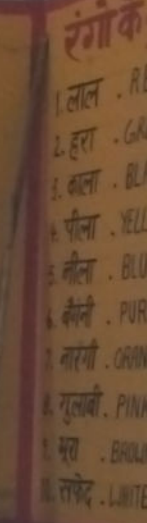 रंगों के
1. लाल . RE
2. हरा . GR
3. काला . BLA
4. पीला . YELL
5. नीला . BLU
6. बैंगनी . PUR
7. नारंगी . ORAN
8. गुलाबी . PINK
9. भूरा . BROW
10. सफेद . WHITE